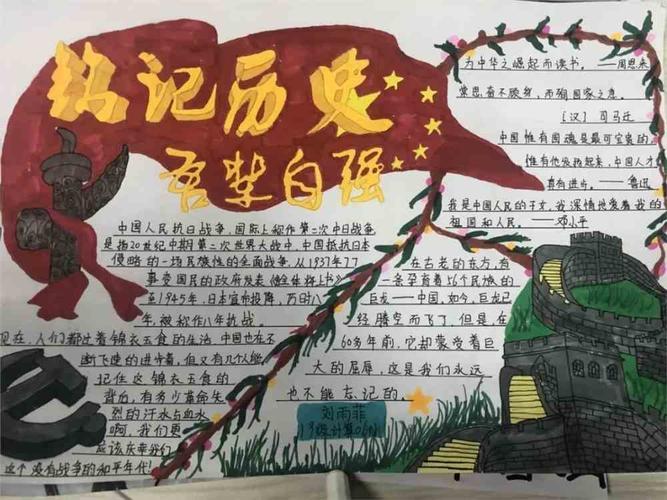 铭记历史
吾辈自强
为中华之崛起而读书。——周恩来
常思奋不顾身，而殉国家之急。
〔汉〕司马迁
中国惟有国魂是最可宝贵的
惟有他发扬起来，中国人才有
真有进步。——鲁迅
我是中国人民的子女，我深情地爱着我的
祖国和人民。——邓小平
中国人民抗日战争，国际上称作第二次中日战争
是指20世纪中期第二次世界大战中，中国抵抗日本
侵略的一场民族性的全面战争，从1937年77
事变国民的政府发表《
至1945年，日本宣布投降，历时八
年，被称作八年抗战。
在古老的东方，有
一条孕育着56个民族的
巨龙——中国，如今，巨龙已
经腾空而飞了，但是，在
60多年前，它却蒙受着巨
大的屈辱，这是我们永远
也不能忘记的。
现在，人们都过着锦衣玉食的生活，中国也在不
断飞速的进步着，但又有几个人能
记住这锦衣玉食的
背后，有多少革命先
烈的汗水与血水
啊，我们更
应该庆幸我们
这个没有战争的和平年代！
刘雨菲